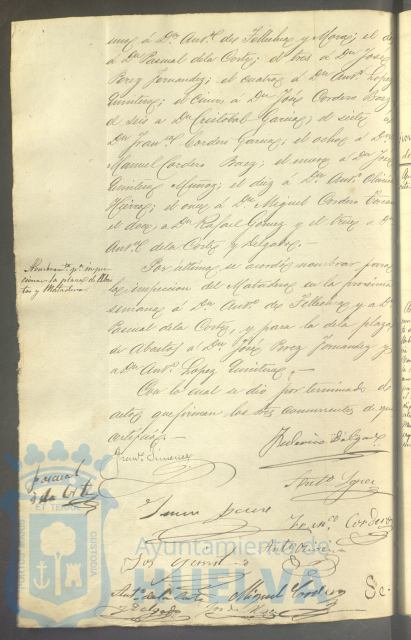 uno á Dn. Antº de Tellechea y Mora; el dos
á Dn Pascual de la Corte; el tres á Dn José
Perez Fernandez; el cuatro á Dn Antº Lopez
Quintero; el cinco á Dn José Cordero Baez;
el seis á Dn Cristobal Garcia; el siete á
Dn Franco Cordero Garcia; el ocho á Dn
Manuel Cordero Baez; el nueve á Dn José
Quintero Muñoz; el diez á Dn Antº Oliveira
el once á Dn Miguel Cordero
el doce á Dn Rafael Gomez y el trece á Dn
Antº de la Corte y Delgado.—
Nombramto pª inspeccionar la plaza de Abastos y Matadero.
Por último se acordó nombrar para
la inspeccion del Matadero en la proxima
semana á Dn Antº de Tellechea y á Dn
Pascual de la Corte, y para la de la plaza
de Abastos á Dn José Perez Fernandez y
á Dn Antº Lopez Quintero.—
Con lo cual se dió por terminado el
acto, que firman los tres concurrentes de que
certifico.—
Jimenez
Pascual
de la Corte
Antº Lopez
Franco Cordero
Antº de la Corte
y Delgado
Miguel Cordero
PORTUS MARIS
ET TERRAE
CUSTODIA
Ayuntamiento de
HUELVA